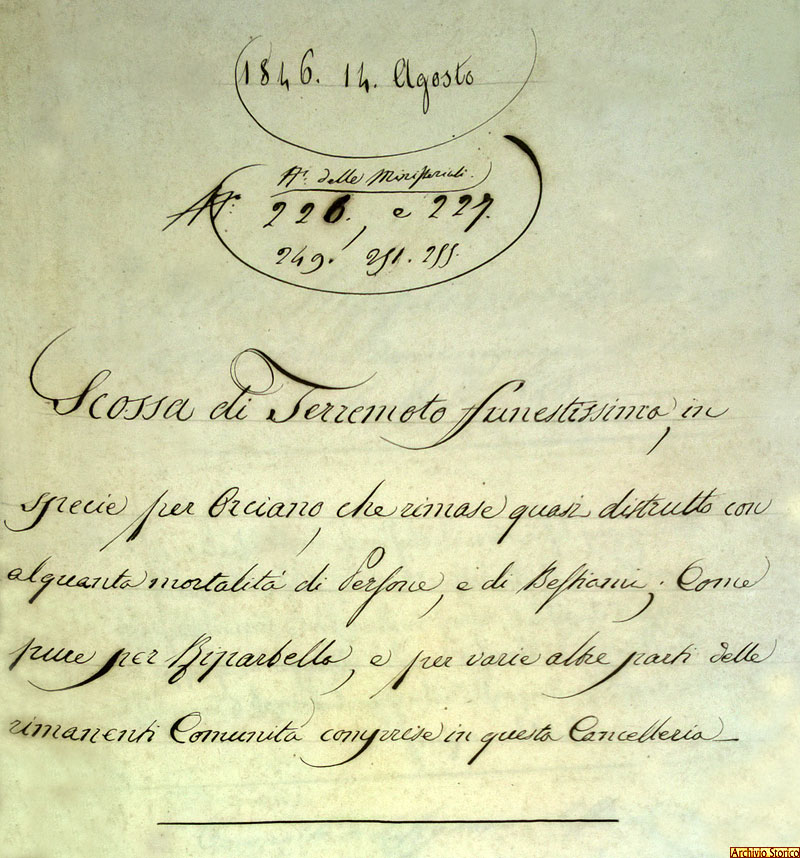 1846. 14. Agosto
N.i delle Ministeriali
N.i 226., e 227.
249. 251. 255.
Scossa di Terremoto funestissima, in
specie per Orciano, che rimase quasi distrutto con
alquanta mortalità di Persone, e di Bestiami; Come
pure per Riparbella, e per varie altre parti delle
rimanenti Comunità comprese in questa Cancelleria
Archivio Storico